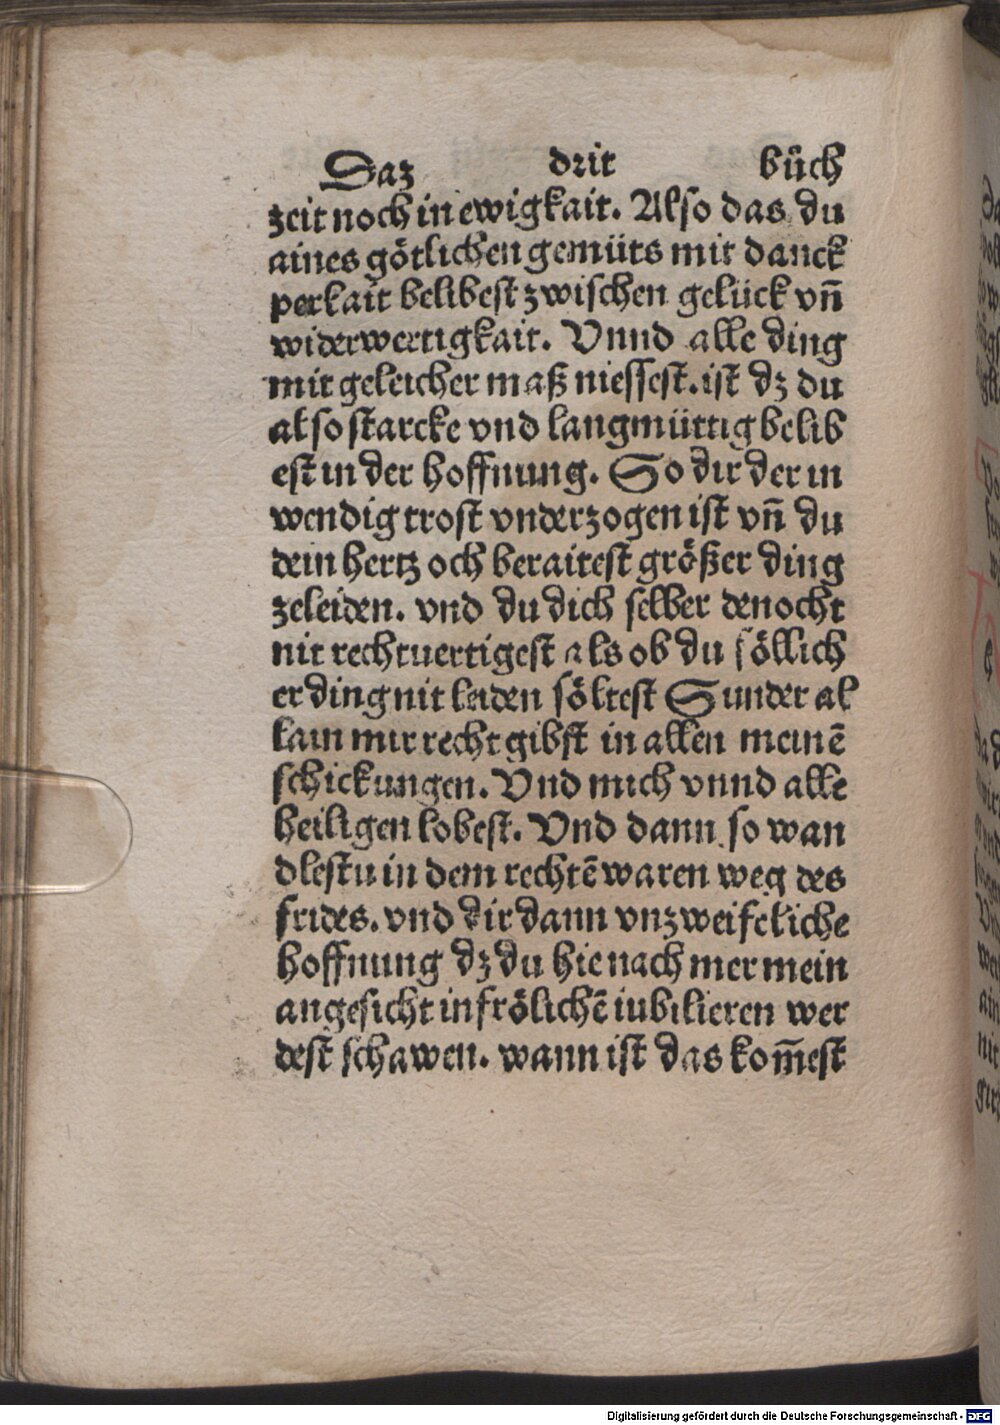 Daz drit bůch
zeit noch in ewigkait. Also das du
aines götlichen gemüts mit danck
perkait belibest zwischen gelück vñ
widerwertigkait. Vnnd alle ding
mit geleicher maß niessest. ist dz du
also starcke vnd langmüttig belib
est in der hoffnung. So dir der in
wendig trost vnderzogen ist vñ du
dein hertz och beraitest größer ding
zeleiden. vnd du dich selber denocht
nit rechtuertigest als ob du söllich
er ding nit leiden söltest Sunder al
lain mir recht gibst in allen meinē
schickungen. Vnd mich vnnd alle
heiligen lobest. Vnd dann so wan
dlestu in dem rechtē waren weg des
frides. vnd dir dann vnzweifeliche
hoffnung dz du hie nach mer mein
angesicht in frölichē iubilieren wer
dest schawen. wann ist das kom̄est
Digitalisierung gefördert durch die Deutsche Forschungsgemeinschaft - DFG